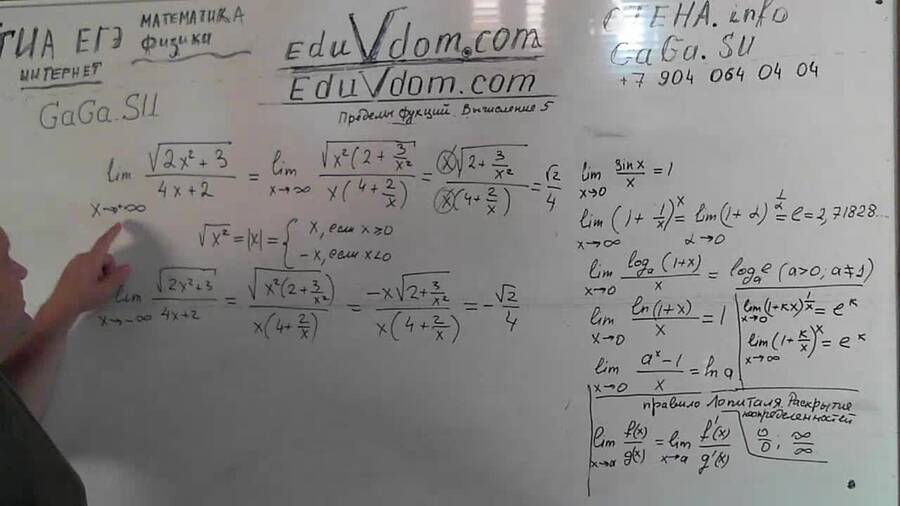 ГИА ЕГЭ МАТЕМАТИКА
физика
ИНТЕРНЕТ
GaGa.SU
EduVdom.com
EduVdom.com
Пределы функций. Вычисление 5
СТЕНА.info
GaGa.SU
+7 904 064 04 04
lim x→+∞ √(2x²+3) / (4x+2) = lim x→∞ √(x²(2+3/x²)) / x(4+2/x) = x√(2+3/x²) / x(4+2/x) = √2/4
√x² = |x| = { x, если x≥0
-x, если x<0
lim x→-∞ √(2x²+3) / (4x+2) = √(x²(2+3/x²)) / x(4+2/x) = -x√(2+3/x²) / x(4+2/x) = -√2/4
lim x→0 sinx/x = 1
lim x→∞ (1+1/x)^x = lim α→0 (1+α)^(1/α) = e = 2,71828...
lim x→0 logₐ(1+x)/x = logₐe (a>0; a≠1)
lim x→0 ln(1+x)/x = 1
lim x→0 (1+кx)^(1/x) = e^к
lim x→∞ (1+к/x)^x = e^к
lim x→0 (a^x-1)/x = ln a
правило Лопиталя. Раскрытие
неопределенностей
lim x→a f(x)/g(x) = lim x→a f'(x)/g'(x) 0/0; ∞/∞